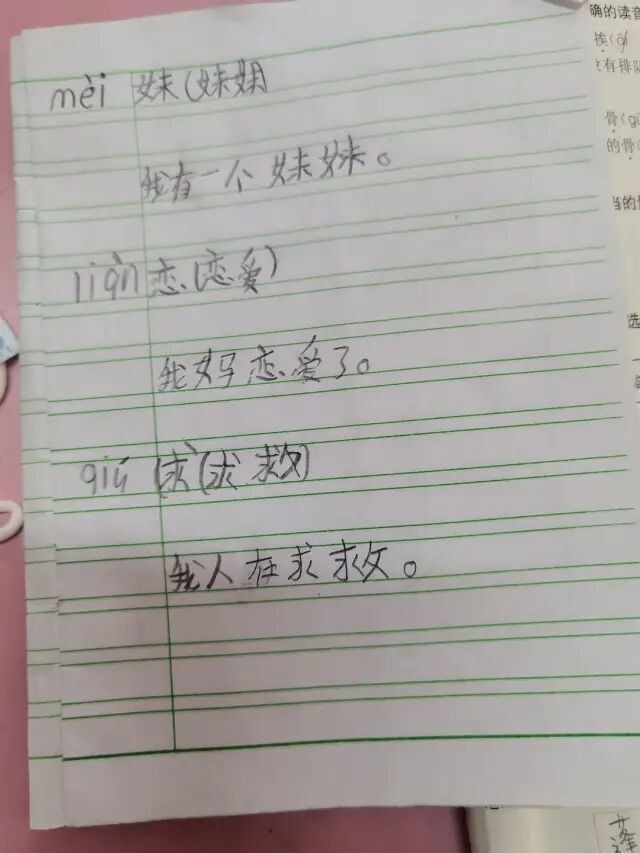 mèi 妹(妹妹)
我有一个妹妹。
liàn 恋(恋爱)
我好恋爱了。
qiú 求(求救)
我人在求救。
确的读音
挨(
有排
骨(gǔ
的骨(
当的
选
蓬